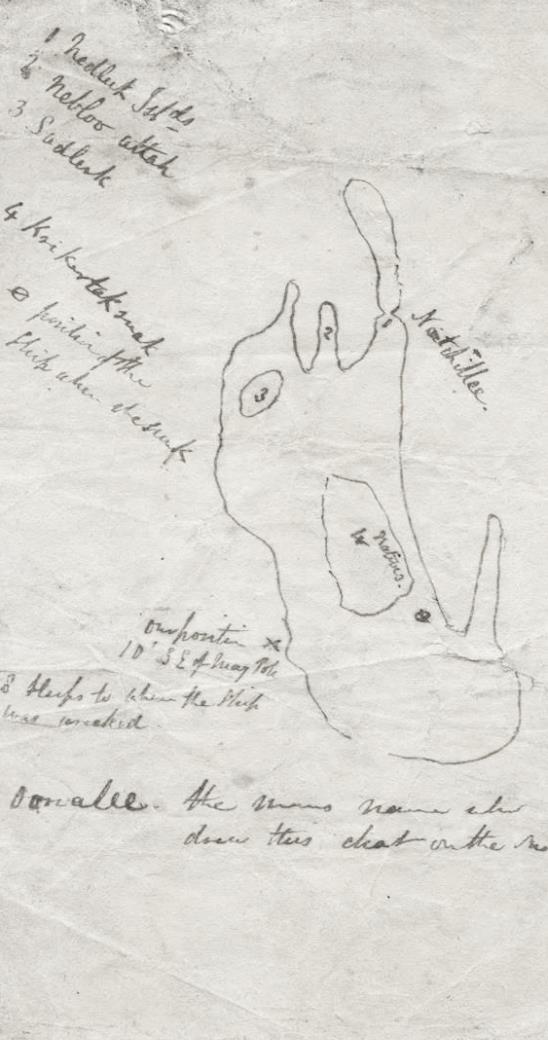 1 Nedluk Islds
2 Nebloo attah
3 Sudluk
4 Krikertaksuak
position of the
Ship when she sunk
1
2
3
Nootchillee.
4
Natives.
our position x
10' S E of Mag Pole
8 Sleeps to where the Ship
was wrecked.
Oonalee. the mans name who
drew this chart on the